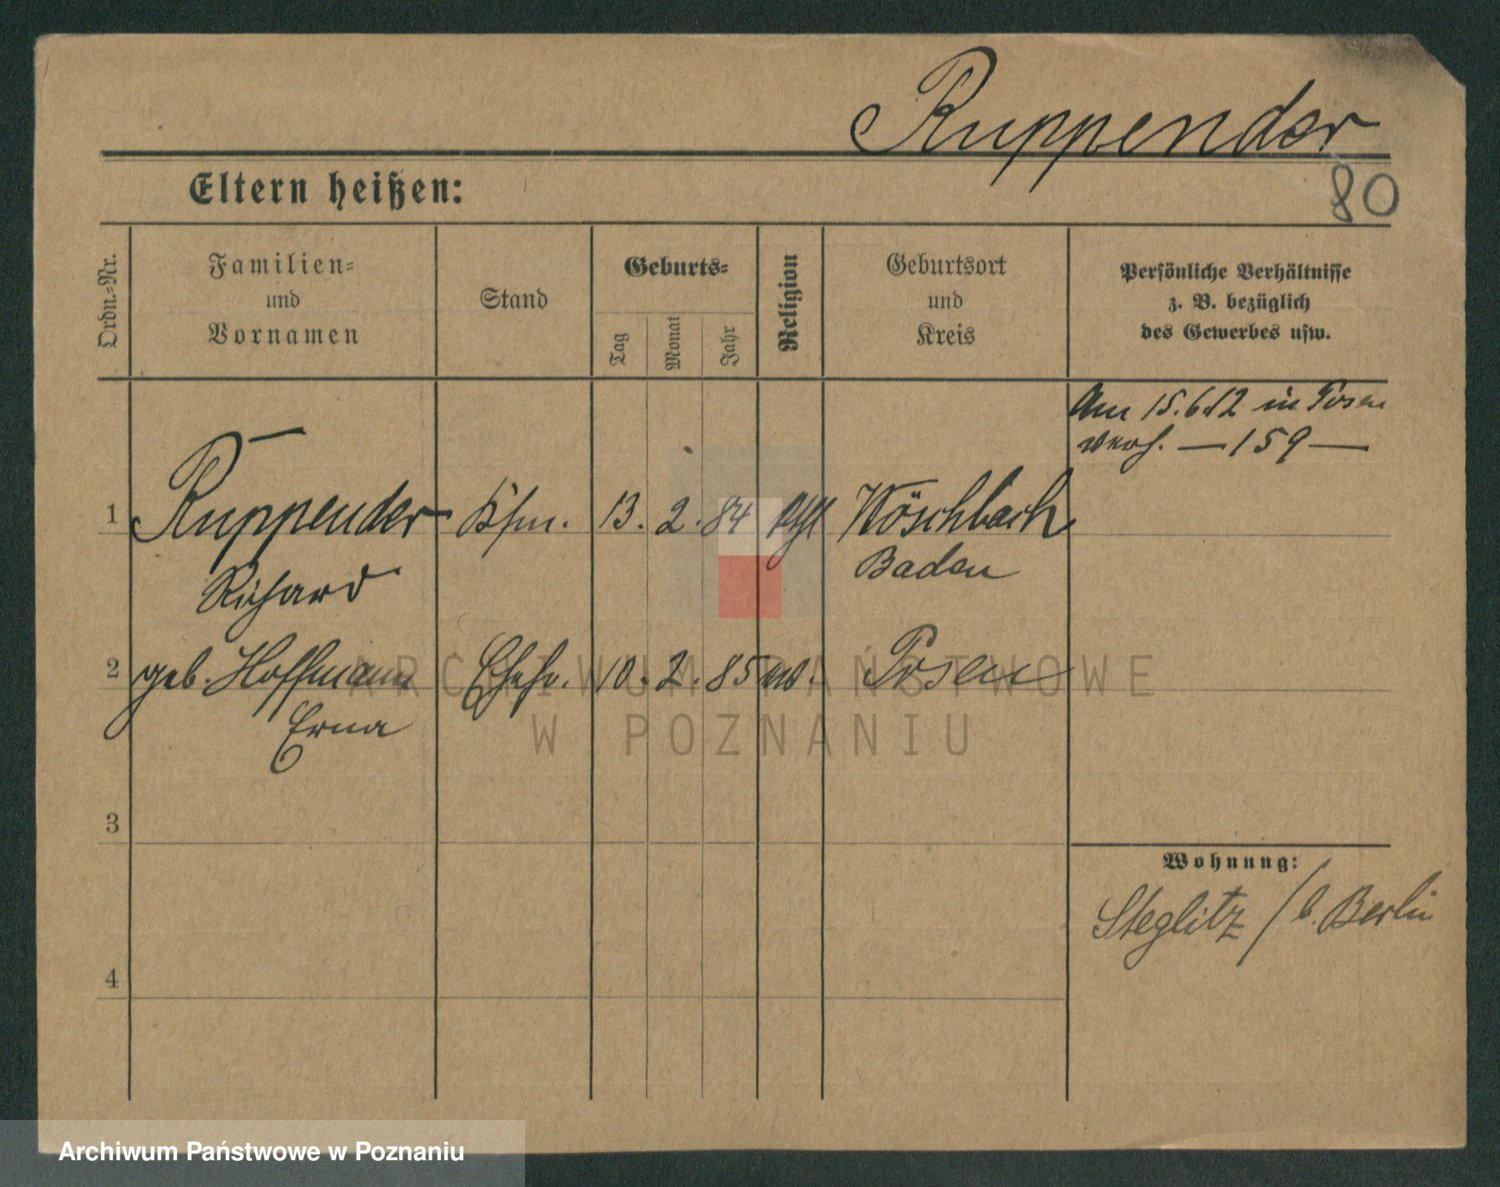 Ruppender
80
Eltern heißen:
Ordn.-Nr.
Familien-
und
Vornamen
Stand
Geburts-
Tag
Monat
Jahr
Religion
Geburtsort
und
Kreis
Persönliche Verhältnisse
z. B. bezüglich
des Gewerbes usw.
Am 15.6.12 in Posen
verh. — 159 —
1 Ruppender Kfm. 13. 2. 84 Wöschbach
Richard Baden
2 geb. Hoffmann Ehefr. 10. 2. 85 Posen
Erna
3
Wohnung:
Steglitz / b. Berlin
4
ARCHIWUM PAŃSTWOWE
W POZNANIU
Archiwum Państwowe w Poznaniu